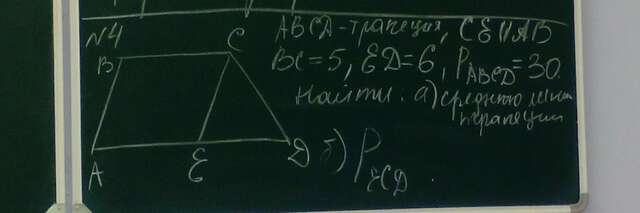 №4
ABCD-трапеция, CE||AB
BC=5, ED=6, P_ABCD=30.
Найти: а) среднюю линию
трапеции
б) P_ECD.
B
C
A
E
D